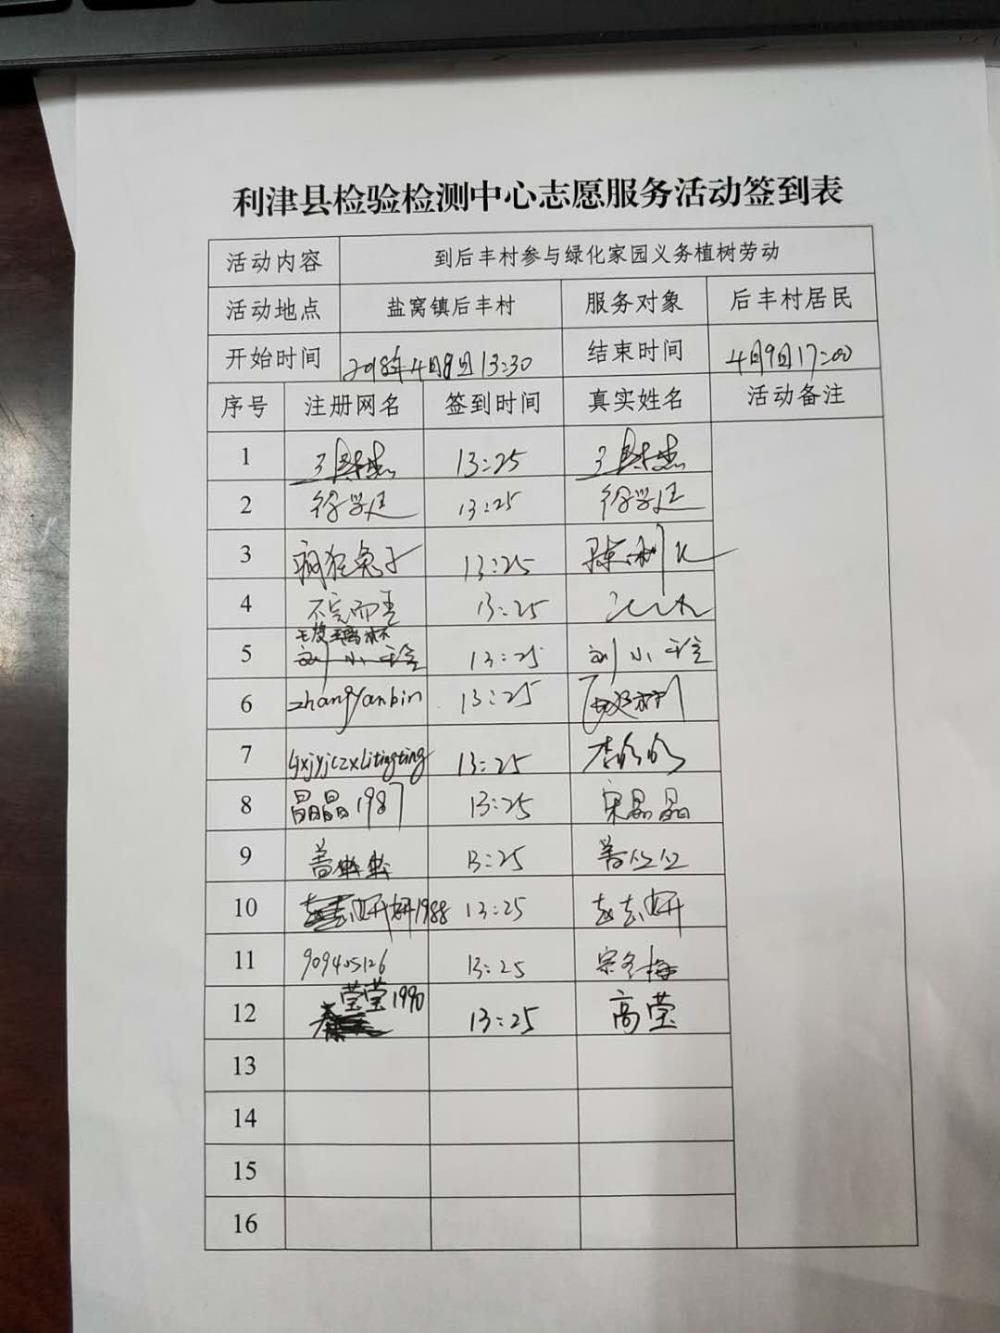 利津县检验检测中心志愿服务活动签到表
活动内容 到后丰村参与绿化家园义务植树劳动
活动地点 盐窝镇后丰村 服务对象 后丰村居民
开始时间 2018年4月9日13:30 结束时间 4月9日17:00
序号 注册网名 签到时间 真实姓名 活动备注
1 13:25
2 13:25
3 疯狂兔子 13:25
4 13:25
玻璃杯
5 13:25 刘小玲
6 zhangyanbin 13:25
7 ljxjyjczxlitingting 13:25
8 晶晶1987 13:25 宋晶晶
9 13:25
10 妍妍1988 13:25 赵志妍
11 909405126 13:25 宗冬梅
莹莹1990
12 13:25 高莹
13
14
15
16